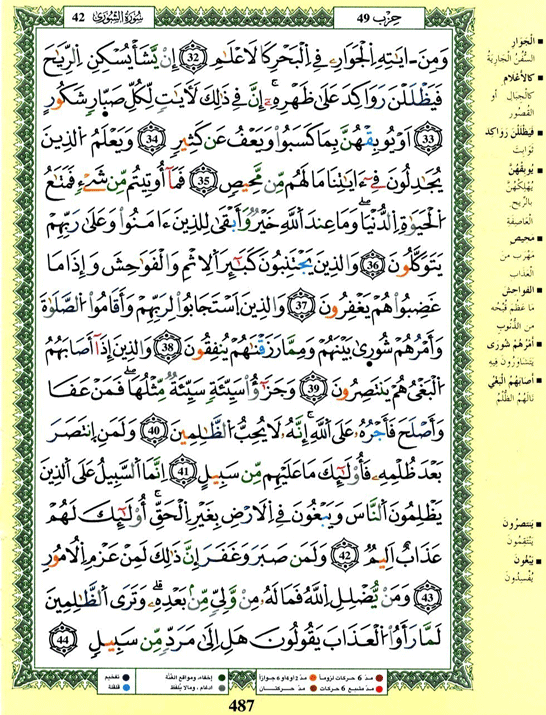 سُورَةُ الشُّورَىٰ 42
حِزْب 49
وَمِنَ اٰيَٰتِهِ اِلْجَوَارِۦ فِے اِلْبَحْرِ كَالَاعْلَٰمِ 32 إِنْ يَّشَأْ يُسْكِنِ اِلرِّيَٰحَ
فَيَظْلَلْنَ رَوَاكِدَ عَلَىٰ ظَهْرِهِۦ إِنَّ فِے ذَٰلِكَ لَأٓيَٰتٖ لِّكُلِّ صَبَّارٖ شَكُورٍ
33 اَوْ يُوبِقْهُنَّ بِمَا كَسَبُواْ وَيَعْفُ عَن كَثِيرٖ 34 وَيَعْلَمُ اُلذِينَ
يُجَٰدِلُونَ فِےٓ ءَايَٰتِنَا مَا لَهُم مِّن مَّحِيصٖ 35 فَمَآ أُوتِيتُم مِّن شَےْءٖ فَمَتَٰعُ
اُلْحَيَوٰةِ اِلدُّنْيَا وَمَا عِندَ اَللَّهِ خَيْرٞ وَأَبْقَىٰ لِلذِينَ ءَامَنُواْ وَعَلَىٰ رَبِّهِمْ
يَتَوَكَّلُونَ 36 وَالذِينَ يَجْتَنِبُونَ كَبَٰٓئِرَ اَلِاثْمِ وَالْفَوَٰحِشَ وَإِذَا مَا
غَضِبُواْ هُمْ يَغْفِرُونَ 37 وَالذِينَ اَسْتَجَابُواْ لِرَبِّهِمْ وَأَقَامُواْ اُلصَّلَوٰةَ
وَأَمْرُهُمْ شُورَىٰ بَيْنَهُمْ وَمِمَّا رَزَقْنَٰهُمْ يُنفِقُونَ 38 وَالذِينَ إِذَآ أَصَابَهُمُ
اُلْبَغْيُ هُمْ يَنتَصِرُونَ 39 وَجَزَٰٓؤُاْ سَيِّئَةٖ سَيِّئَةٞ مِّثْلُهَا فَمَنْ عَفَا
وَأَصْلَحَ فَأَجْرُهُۥ عَلَى اَللَّهِ إِنَّهُۥ لَا يُحِبُّ اُلظَّٰلِمِينَ 40 وَلَمَنِ اِنتَصَرَ
بَعْدَ ظُلْمِهِۦ فَأُوْلَٰٓئِكَ مَا عَلَيْهِم مِّن سَبِيلٍ 41 اِنَّمَا اَلسَّبِيلُ عَلَى اَلذِينَ
يَظْلِمُونَ اَلنَّاسَ وَيَبْغُونَ فِے اِلَارْضِ بِغَيْرِ اِلْحَقِّ أُوْلَٰٓئِكَ لَهُمْ
عَذَابٌ اَلِيمٞ 42 وَلَمَن صَبَرَ وَغَفَرَ إِنَّ ذَٰلِكَ لَمِنْ عَزْمِ اِلُامُورِ
43 وَمَنْ يُّضْلِلِ اِللَّهُ فَمَا لَهُۥ مِنْ وَّلِيّٖ مِّنۢ بَعْدِهِۦ وَتَرَى اَلظَّٰلِمِينَ
لَمَّا رَأَوُاْ اُلْعَذَابَ يَقُولُونَ هَلِ اِلَىٰ مَرَدّٖ مِّن سَبِيلٖ 44
■ الْجَوَارِ
السُّفُنُ الْجَارِيَةُ
■ كَالأَعْلَامِ
كَالْجِبَالِ أو
القُصُورِ
■ فَيَظْلَلْنَ رَوَاكِدَ
ثَوَابِتَ
■ يُوبِقْهُنَّ
يُهْلِكْهُنَّ
بِالرِّيحِ
الْعَاصِفَةِ
■ مَحِيصٍ
مَهْرَبٍ مِنَ
الْعَذَابِ
■ الْفَوَاحِشَ
مَا عَظُمَ قُبْحُه
مِنَ الذُّنُوبِ
■ أَمْرُهُمْ شُورَى
يَتَشَاوَرُونَ فِيهِ
■ أَصَابَهُمُ الْبَغْيُ
نَالَهُمُ الظُّلْمُ
■ يَنْتَصِرُونَ
يَنْتَقِمُونَ
■ يَبْغُونَ
يُفْسِدُونَ
مدّ 6 حركات لزوماً
مدّ 2 أو 4 أو 6 جوازاً
إخفاء، ومواقع الغُنَّة
تفخيم
مدّ مشبع 6 حركات
مدّ حركتان
إدغام، وما لا يُلفَظ
قلقلة
487